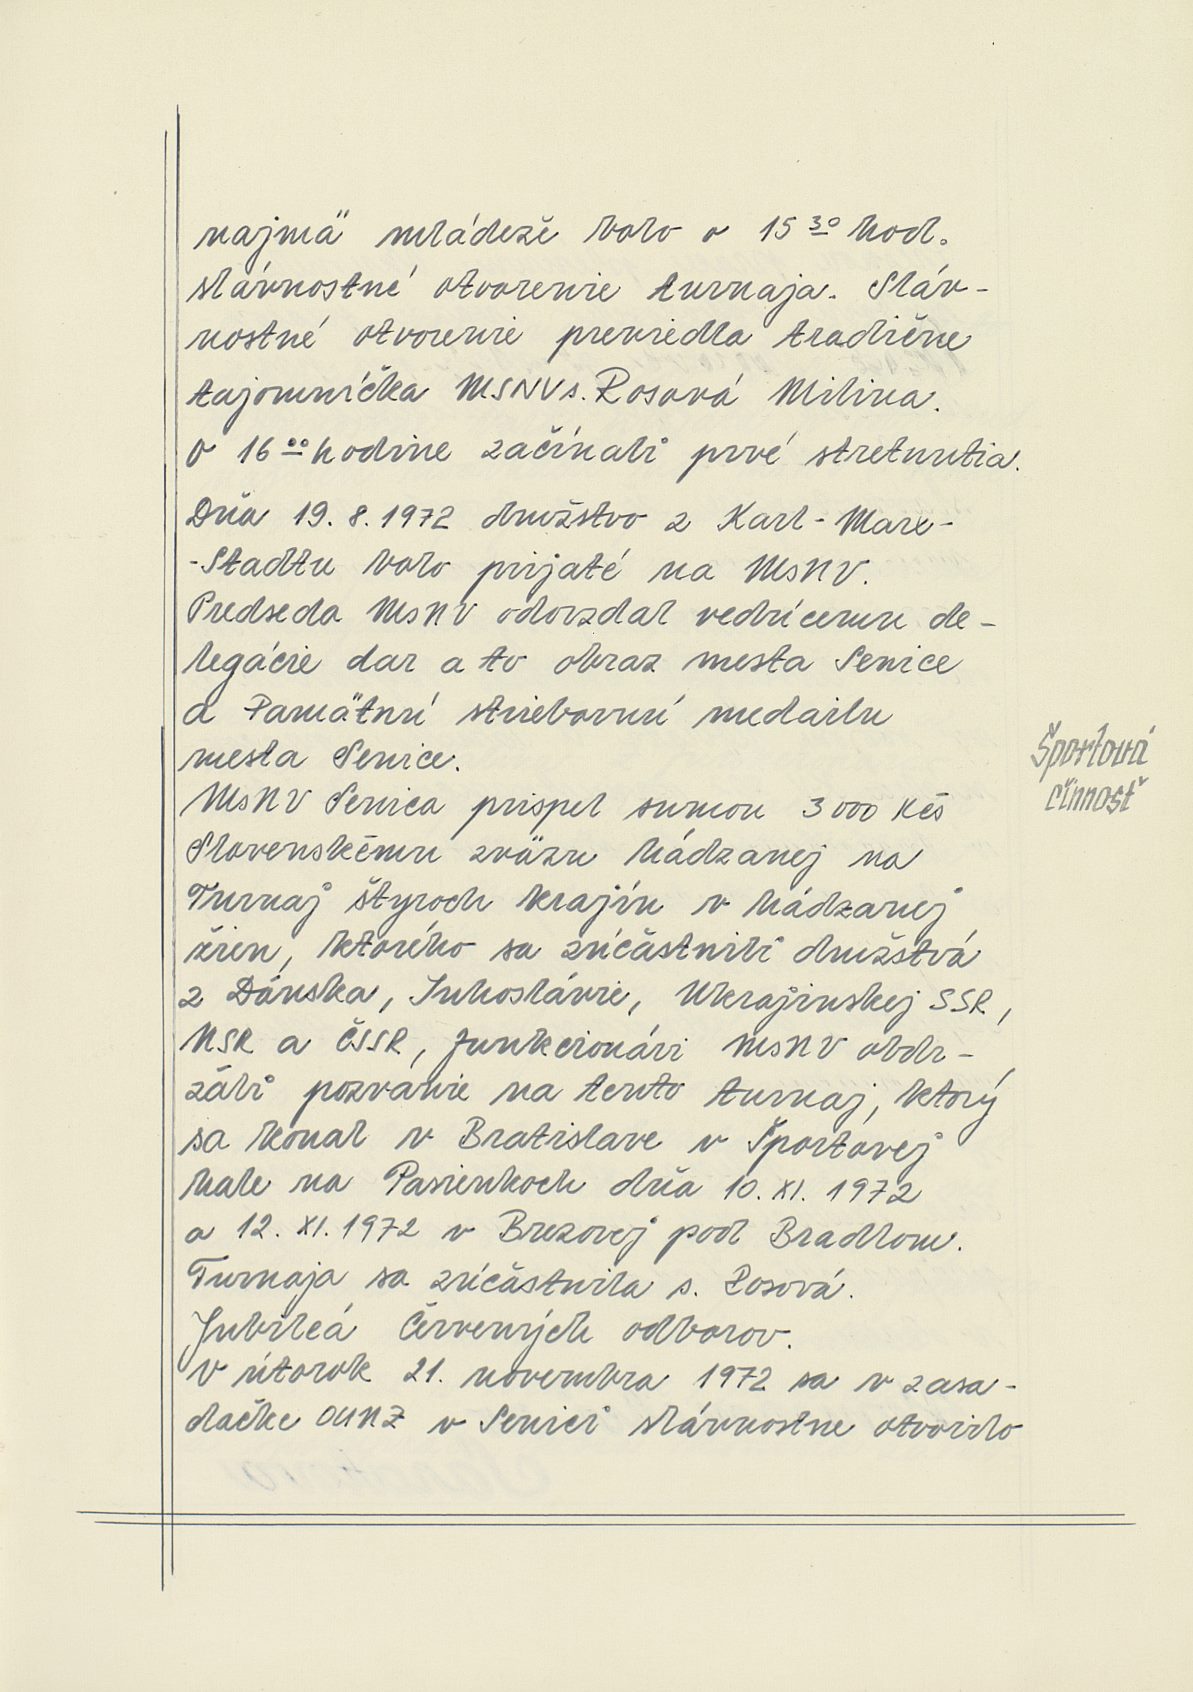 najmä mládeže bolo o 15 30 hod.
slávnostné otvorenie turnaja. Sláv-
nostné otvorenie previedla tradične
tajomníčka MSNV s. Rosová Milina.
O 16 00 hodine začínali prvé stretnutia.
Dňa 19. 8. 1972 družstvo z Karl-Marx-
-Stadtu bolo prijaté na MsNV.
Predseda MsNV odovzdal vedúcemu de-
legácie dar a to obraz mesta Senice
a Pamätnú striebornú medailu
mesta Senice.
MsNV Senica prispel sumou 3 000 Kčs
Slovenskému zväzu hádzanej na
Turnaj štyroch krajín v hádzanej
žien, ktorého sa zúčastnili družstvá
z Dánska, Juhoslávie, Ukrajinskej SSR,
NSR a ČSSR, funkcionári MsNV obdr-
žáli pozvánie na tento turnaj, ktorý
sa konal v Bratislave v Športovej
hale na Pasienkoch dňa 10. XI. 1972
a 12. XI. 1972 v Brezovej pod Bradlom.
Turnaja sa zúčastnila s. Rosová.
Jubileá Červených odborov.
V útorok 21. novembra 1972 sa v zasa-
dačke OUNZ v Senici slávnostne otvorilo
Športová
činnosť